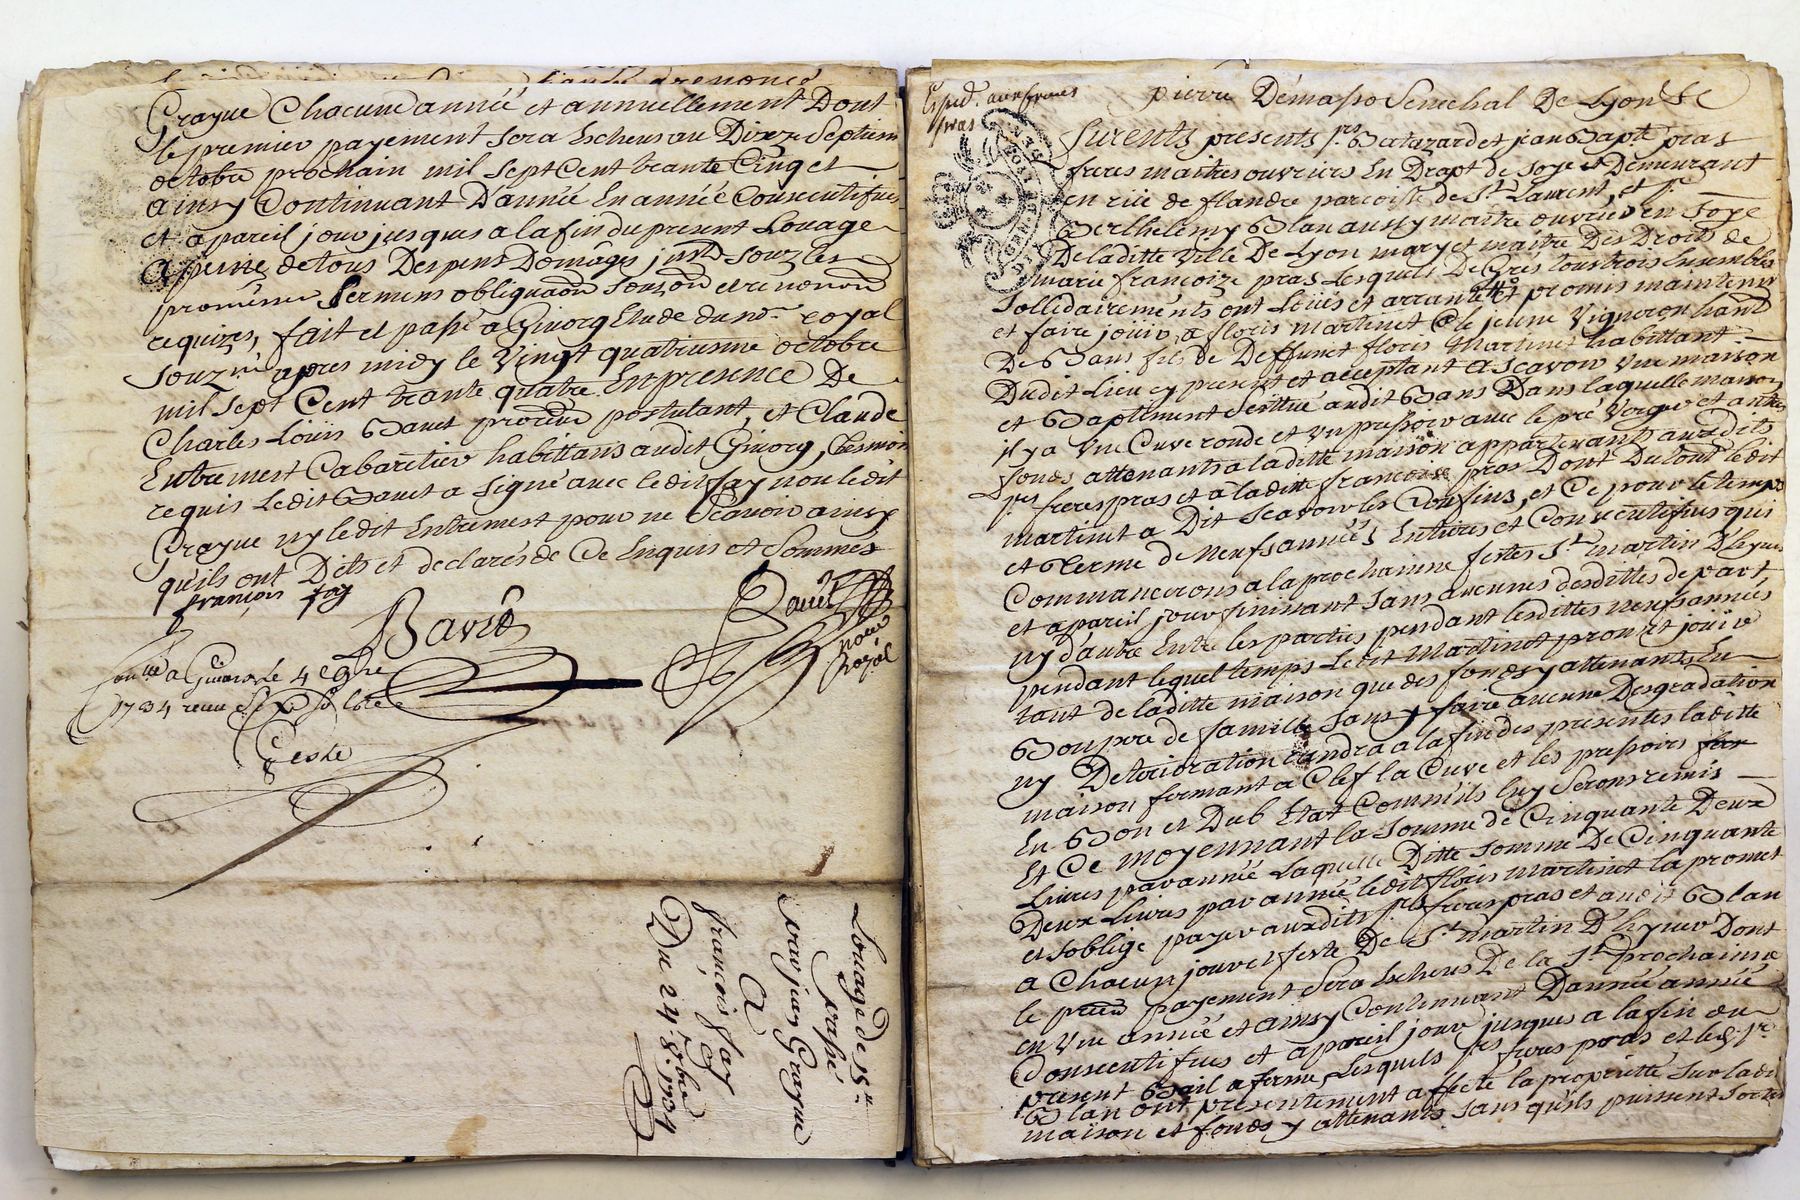 Grayue Chacune année et annuellement Dont
le premier payement sera Escheus au Dixe Septiem
octobre prochain mil sept Cent trante Cinq et
ainsy Continuant D'année En année Consecutifues
et a pareil jour jusques a la fin du present Louage
a peine de tous Despens Domâges
promesse sermens obligaon
requizes, fait et passé a Givorg Etude du no.re royal
souz.né apres midy le Vingt quatriesme octobre
mil sept Cent trante quatre En presence De
Charles Loüis Bauet postulant, et Claude
Entremest Cabaretier habittans audit Givorg, Tesmoins
requis Ledit Bauet a signé avec ledit fay non ledit
Grayue ny ledit Entremest pour ne Scavoir ainsy
qu'ils ont Dit et declarés de Ce Enquis et Sommés
françois fay
Bavet
no.re
Royal
a Givors Le 4 9bre
1734 receu
Geste
Louage de 15 ll
passé
par jean Grayue
A
françois fay
Du 24 8.bre 1734
Exped. aux freres
pras
pierre Démaso Senechal De Lyon &c
furents presents p.re Batazard et jean Bap.te pras
freres maitres ouvriers En Drapt de soye Demeurant
en rüe de flandre parroisse de S.t Laurent, et
Berthelemy Blan aussy maitre ouvrier en Soye
De laditte Ville De Lyon mary et maitre Des Droits de
marie françoize pras Lesquels De Grés tous trois Ensembles
Sollidairements ont Loüés et arrantés et promis maintenir
et faire jouir, a floris martinet le jeune Vigneron
De Bans fils de Deffunct floris Martinet habittant
Dudet Lieu cy present et acceptant A Scavoir Vne maison
et Baptiment Scittué audit Bans Dans laquelle maison
il y a Vne Cuve ronde et Vn pressoir avec le pré Verger et autres
fonds attenants a laditte maison appartenants auxdits
freres pras et a laditte françoise pras Dont Du tout ledit
martinet a Dit Scavoir les Confins, et Ce pour le temps
et Terme de Neufs années Entieres et Consecutifues qui
Commancerons a la prochainne festes S.t martin D'hyuer
et a pareil jour finissant Sans aucunes desdittes de part,
ny d'autre Entre les parties pendant lesdittes neufs années
pendant lequel temps Ledit Martinet promet joüir
tant de laditte maison que des fonds y attenants En
Bon pere de famille Sans y faire aucune Desgradation
ny Deterioration randra a la fin des presentes laditte
maison fermant a Clef la Cuve et les pressoirs
En Bon et Deub Etat Comm'ils luy Serons remis
Et Ce moyennant la Somme de Cinquante Deux
Livres par année Laquelle Ditte Somme De Cinquante
Deux Livres par année ledit floris martinet la promet
et s'oblige payer auxdits freres pras et audit Blan
a Chacun jour et feste De S.t martin D'hyuer Dont
le payement Sera Escheus De la S.t prochainne
en Vne année et ainsy Continuant D'année année
Consecutifues et a pareil jour jusques a la fin du
present Bail a ferme, Lesquels freres pras et led.
Blan ont presentement affecté la proprietté Sur
maison et fonds y attenants Sans qu'ils puissent